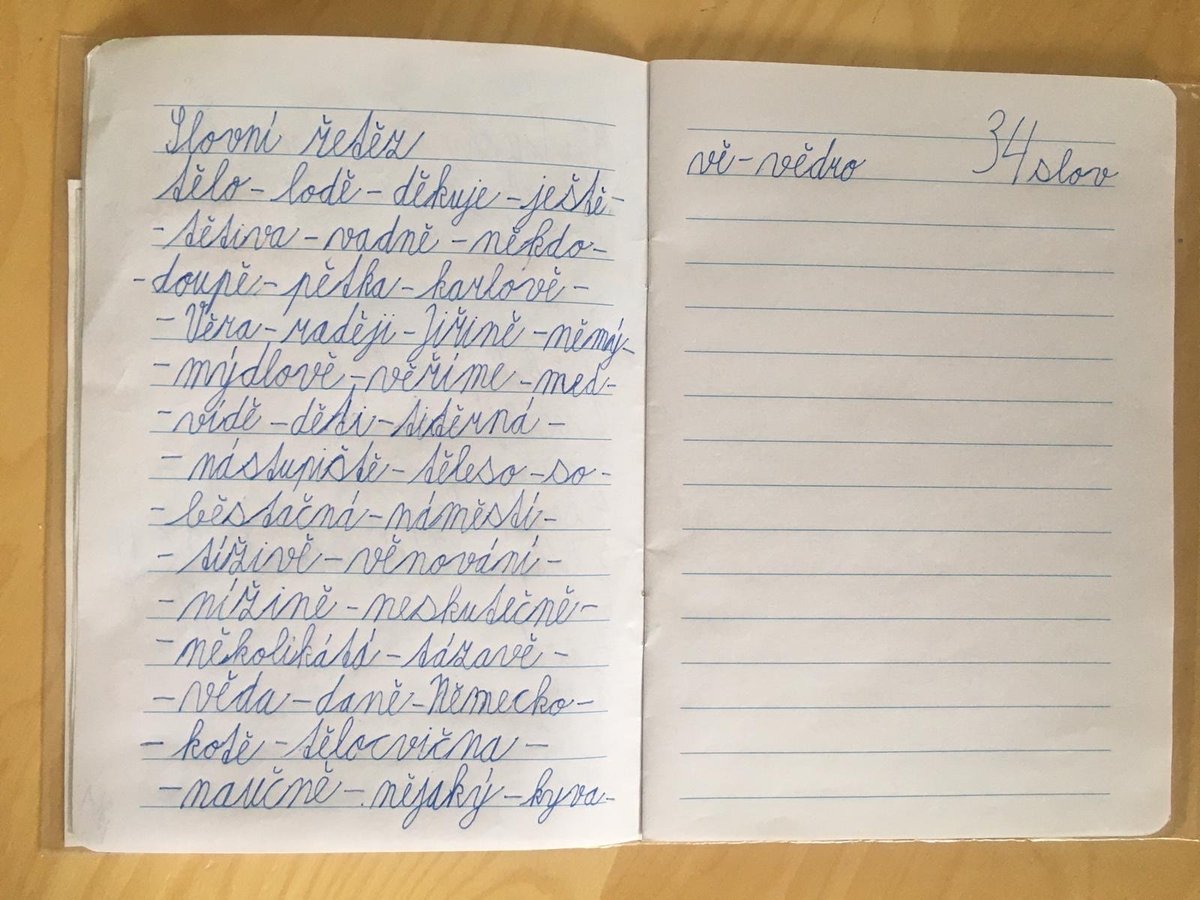 Slovní řetěz
tělo - lodě - děkuje - ještě -
- tětiva - vadně - někdo -
- doupě - pětka - karlově -
- Věra - raději - Jiřině - němý -
- mýdlově - věříme - med -
- vídě - děti - titěrná -
- nástupiště - těleso - so -
- běstačná - náměstí -
- tíživě - věnování -
- nížině - neskutečně -
- několikátá - tázavě -
- věda - daně - Německo -
- kotě - tělocvična -
- naučně - nějaký - kyva -
vě - vědro 34 slov